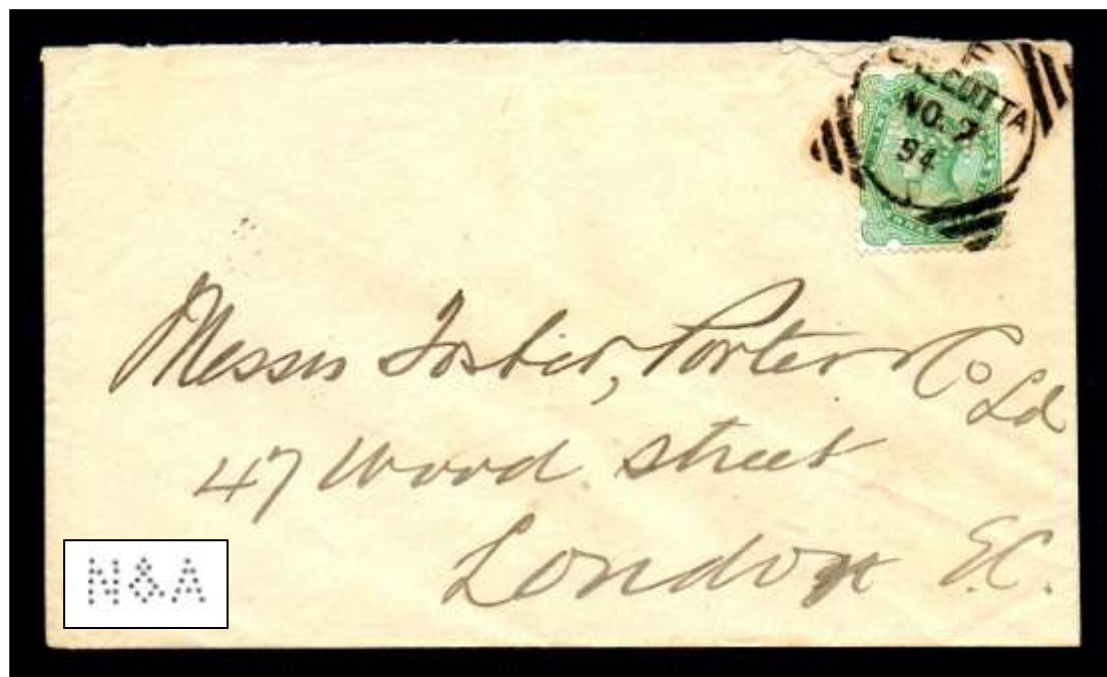 CALCUTTA
NO. 7
94
Messrs Foster, Porter & Co Ld
47 Wood street
London E.C.
N&A